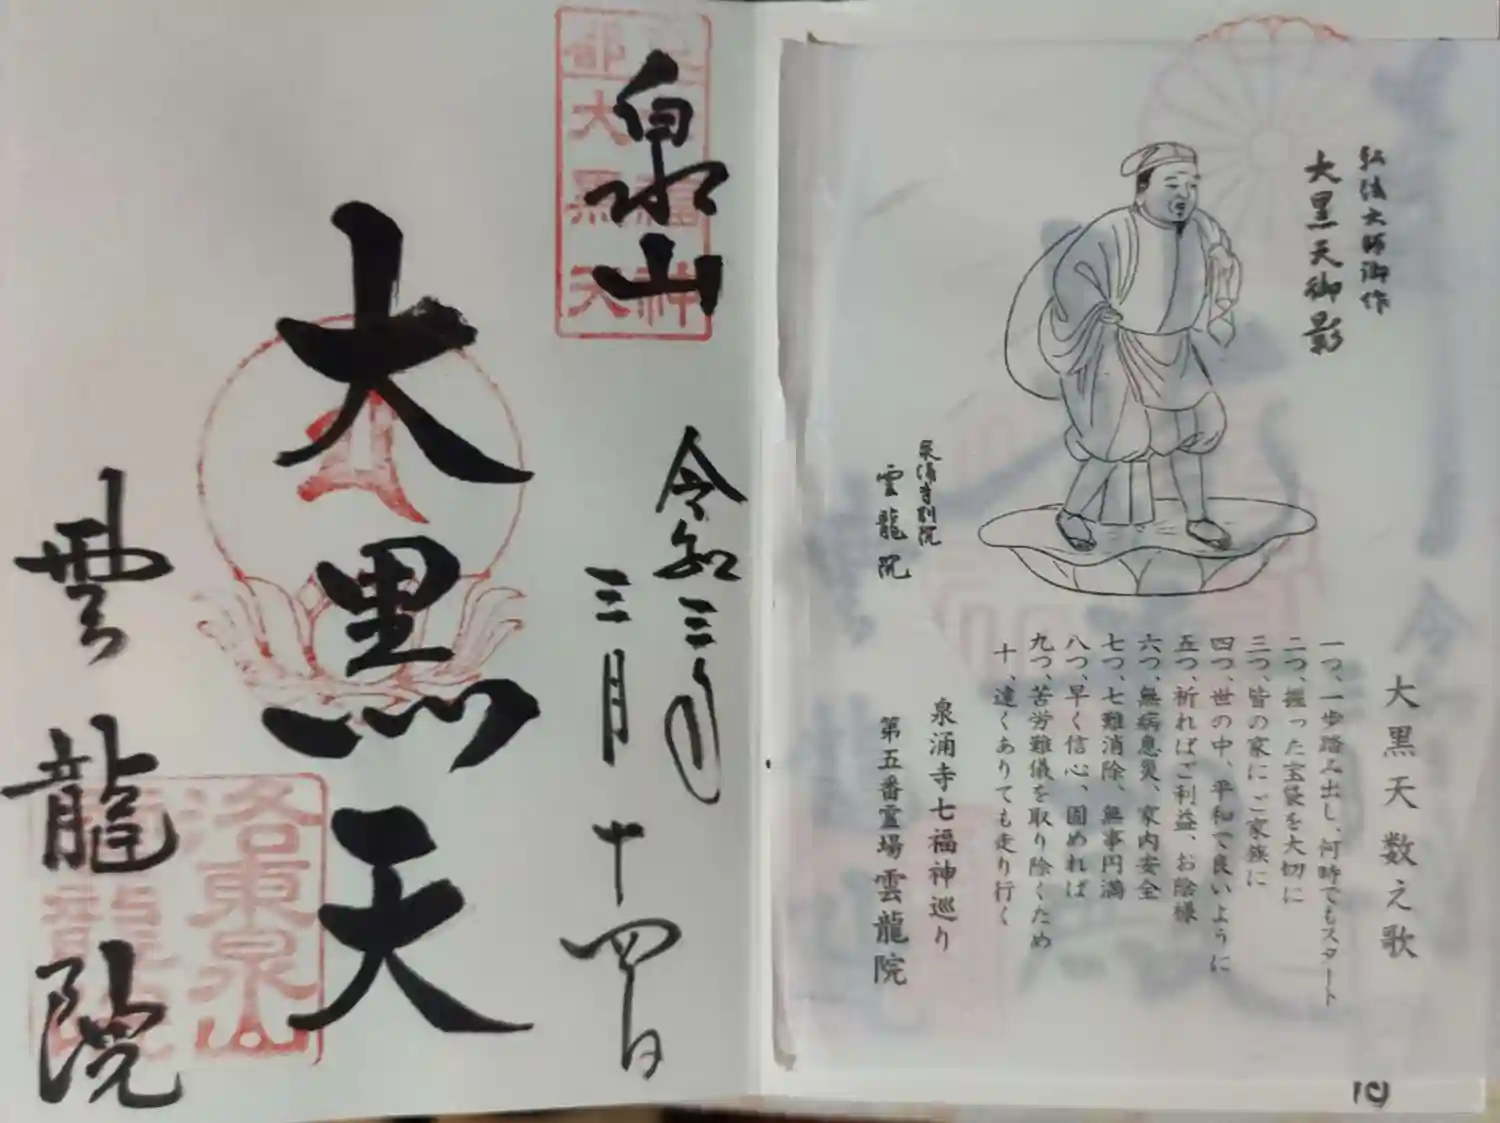 泉山
令和三年
三月十四日
大黒天
雲龍院
大黒天
福神
洛東泉山
弘法大師御作
大黒天御影
泉涌寺別院
雲龍院
大黒天数え歌
一つ、一歩踏み出し、何時でもスタート
二つ、握った宝袋を大切に
三つ、皆の家にご家族に
四つ、世の中、平和で良いように
五つ、祈ればご利益、お陰様
六つ、無病息災、家内安全
七つ、七難消除、無事円満
八つ、早く信心、固めれば
九つ、苦労難儀を取り除くため
十、遠くありても走り行く
泉涌寺七福神巡り
第五番霊場雲龍院